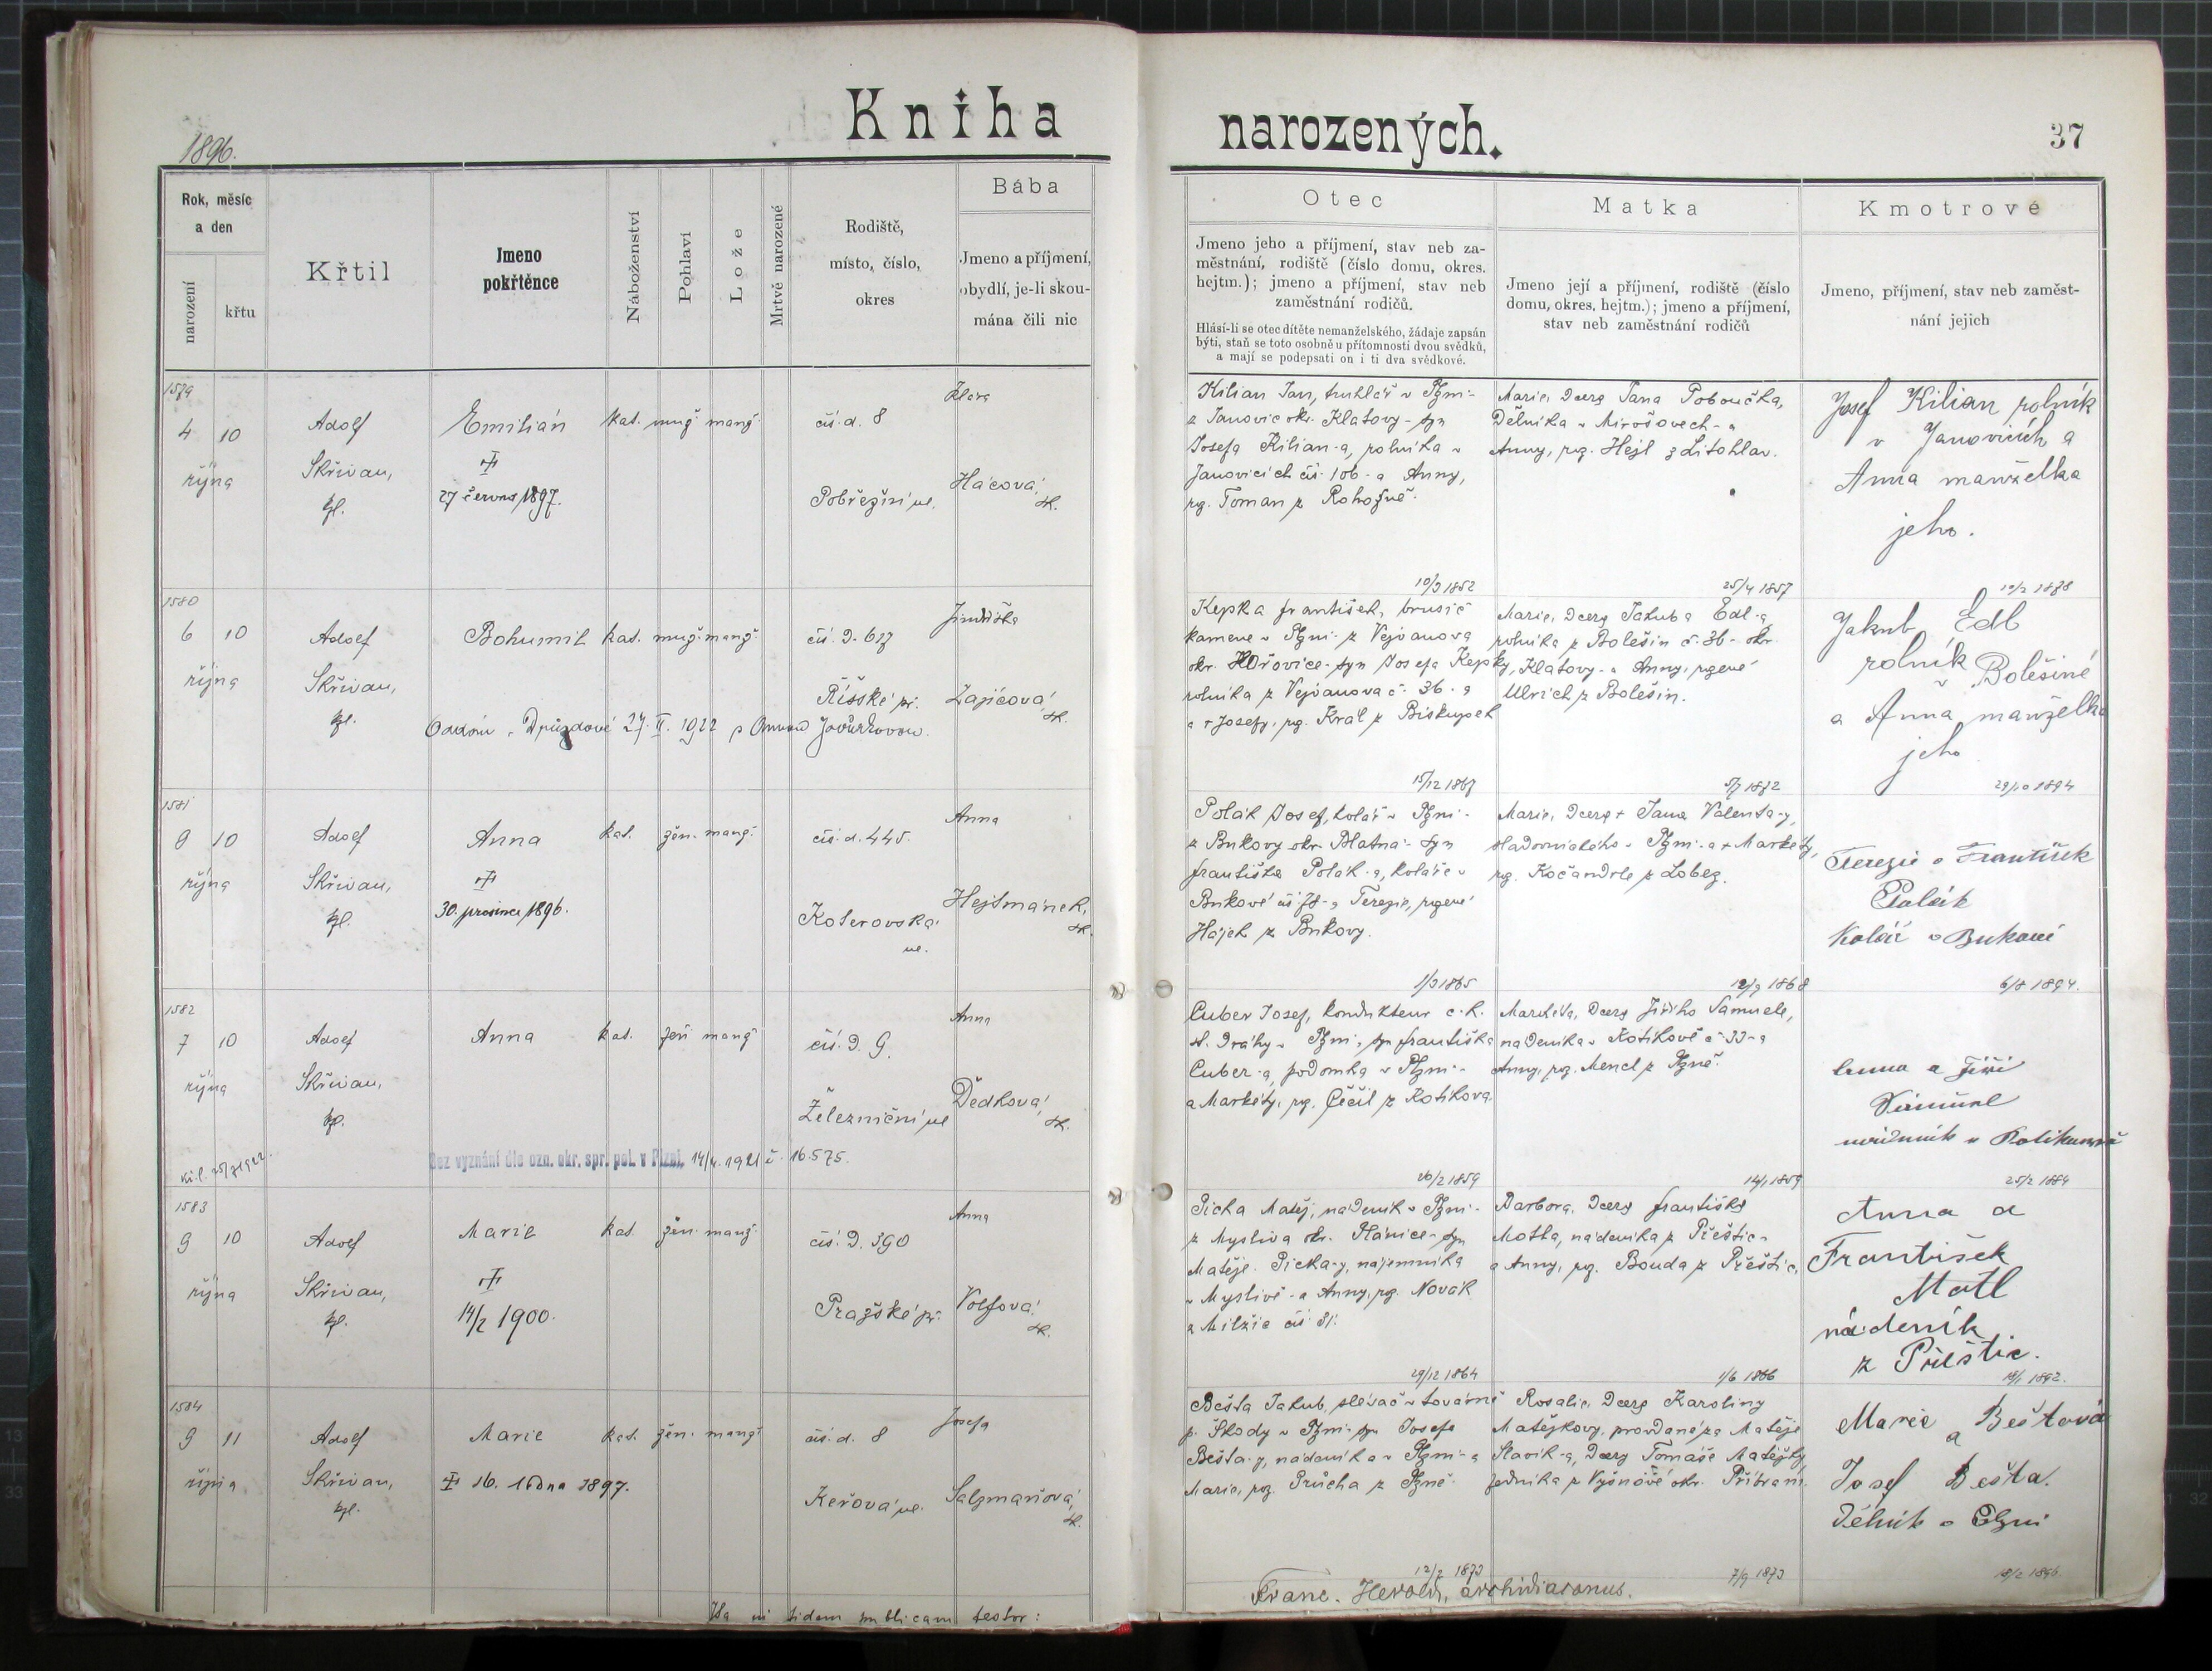 Kniha narozených.
1896.
37
Rok, měsíc a den
narození
křtu
Křtil
Jmeno pokřtěnce
Náboženství
Pohlaví
Lože
Mrtvě narozené
Rodiště,
místo, číslo,
okres
Bába
Jmeno a příjmení,
obydlí, je-li skou-
mána čili nic
Otec
Jmeno jeho a příjmení, stav neb za-
městnání, rodiště (číslo domu, okres.
hejtm.); jmeno a příjmení, stav neb
zaměstnání rodičů.
Hlásí-li se otec dítěte nemanželského, žádaje zapsán
býti, staň se toto osobně u přítomnosti dvou svědků,
a mají se podepsati on i ti dva svědkové.
Matka
Jmeno její a příjmení, rodiště (číslo
domu, okres. hejtm.); jmeno a příjmení,
stav neb zaměstnání rodičů
Kmotrové
Jmeno, příjmení, stav neb zaměst-
nání jejich
1579
4 10
října
Adolf
Skřivan,
kpl.
Emilián
27 června 1897.
kat. muž. manž.
čís. d. 8
Pobřežní ul.
Klára
Hácová,
zk.
Kilian Jan, truhlář v Plzni -
z Janovic okr. Klatovy - syn
Josefa Kilian-a, rolníka v
Janovicích čís. 106 - a Anny,
roz. Toman z Rohozné.
Marie, dcera Jana Poboučka,
dělníka v Mirošovech - a
Anny, roz. Hejl z Litohlav.
Josef Kilian rolník
v Janovicích a
Anna manželka
jeho.
10/3 1852
25/4 1857
19/2 1878
1580
6 10
října
Adolf
Skřivan,
kpl.
Bohumil
kat. muž. manž.
čís. d. 617
Říšské př.
Jindřiška
Zajícová,
zk.
Oddán v Druždové 27. II. 1922 s Annou Javůrkovou.
Kepka František, brusič
kamene v Plzni - z Vejvanova
okr. Hořovice - syn Josefa Kepky,
rolníka z Vejvanova č. 36 - a
a † Josefy, roz. Král z Biskupek
Marie, dcera Jakuba Edl-a
rolníka z Bolešin č. 36 - okr.
Klatovy - a Anny, rozené
Ulrich z Bolešin.
Jakub Edl
rolník v Bolešiné
a Anna manželka
jeho
15/12 1867
5/7 1872
29/10 1894
1581
9 10
října
Adolf
Skřivan,
kpl.
Anna
30. prosince 1896.
kat. žen. manž.
čís. d. 445.
Koterovská
ul.
Anna
Hejtmánek,
zk.
Polák Josef, kolář v Plzni -
z Bukovy okr. Blatná - syn
Františka Polák-a, koláře v
Bukové čís. 78 - a Terezie, rozené
Hájek z Bukovy.
Marie, dcera † Jana Valenta-y,
sladovnického v Plzni - a † Markéty,
roz. Kočandrle z Lobez.
Terezie a František
Polák
Kolář v Bukové
1/3 1865
12/7 1868
6/8 1894.
1582
7 10
října
Adolf
Skřivan,
kpl.
Anna
kat. žen. manž.
čís. d. 9.
Železniční ul.
Anna
Dědková,
zk.
Bez vyznání dle ozn. okr. spr. pol. v Plzni. 14/4. 1921 č. 16.575.
Cuber Josef, kondukteur c. k.
st. dráhy v Plzni, syn Františka
Cuber-a, podomka v Plzni -
a Markéty, roz. Čečil z Kotíkova.
Markéta, dcera Jiřího Samuele,
nádeníka v Kotíkově č. 33 - a
Anny, roz. Mencl z Plzně.
Anna a Jiří
Samuel
nádeník v Kotíkově
20/2 1859
14/1 1859
25/2 1884
1583
9 10
října
Adolf
Skřivan,
kpl.
Marie
14/2 1900.
kat. žen. manž.
čís. d. 390
Pražské př.
Anna
Volfová,
zk.
Picka Matěj, nádeník v Plzni -
z Mysliva okr. Plánice - syn
Matěje Picka-y, nájemníka
v Myslivě - a Anny, roz. Novák
z Milzic čís. 31.
Barbora, dcera Františka
Motla, nádeníka z Přeštic -
a Anny, roz. Bouda z Přeštic.
Anna a
František
Motl
nádeník
z Přeštic.
29/12 1864
1/6 1866
19/1 1892.
1584
9 11
října
Adolf
Skřivan,
kpl.
Marie
16. ledna 1897.
kat. žen. manž.
čís. d. 8
Keřová ul.
Josefa
Salzmanová,
zk.
Bešta Jakub, slévač v továrně
p. Škody v Plzni - syn Josefa
Bešta-y, nádeníka v Plzni - a
Marie, roz. Průcha z Plzně.
Rosalie, dcera Karoliny
Matějkovy, provdané za Matěje
Slavík-a, dcery Tomáše Matějky,
Marie a Beštová
Josef Bešta.
Dělník v Plzni
12/2 1873
7/9 1873
18/2 1896.
Ita in fidem publicam testor:
Franc. Herold, archidiaconus.